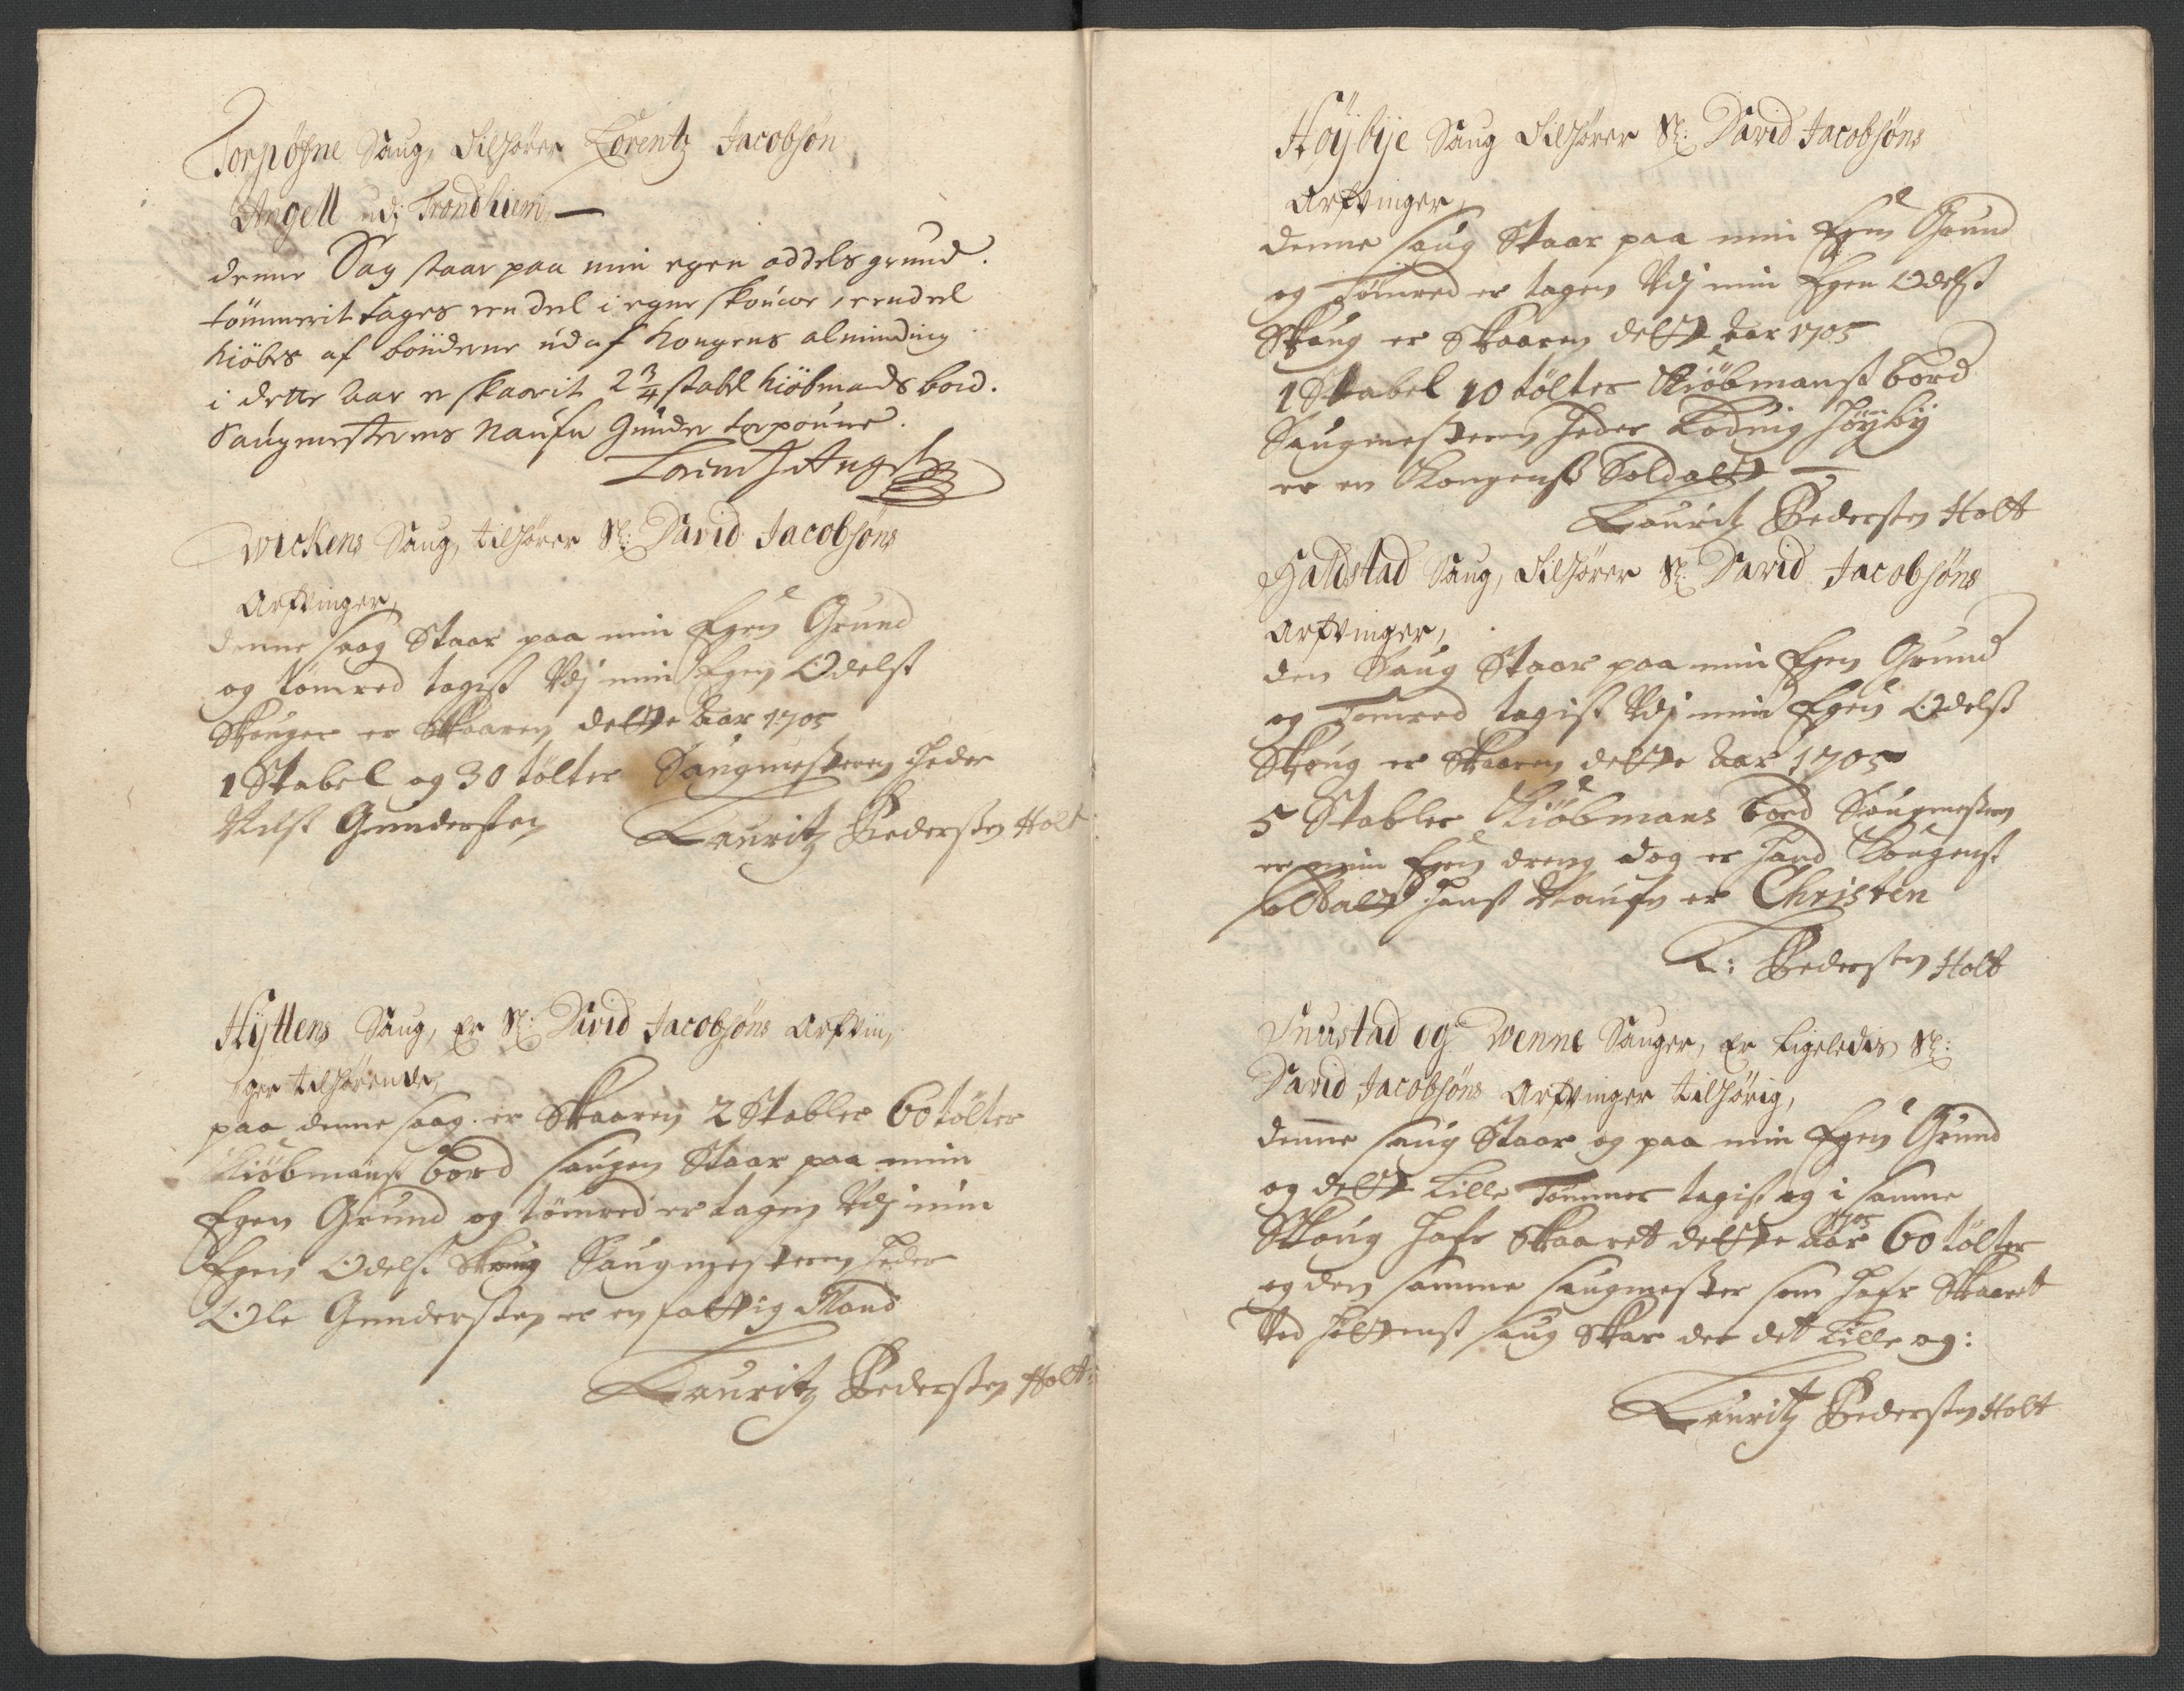 Torpøfne Saug, tilhører Lorentz Jacobsøn
Angell udj Trondhiem —
denne Sag staar paa min egen oddels grund.
tömmerit tages een deel i egne skouwe, een deel
kiöbes af bönderne ud af Kongens alminding
i dette aar er skaarit 2 3/4 stabl kiöbmands bord.
Saugmesterens Naufn Gunder torpoune.
Lorentz Angell
Wickens Saug, tilhører Sl: David Jacobsøns
Arfvinger,
denne saag Staar paa min Egen Grund
og tömred tagist Vdj min Egen Odelst
Skouger er Skaaren dette aar 1705
1 Stabel og 30 tölter Saugmesteren heder
Nilst Gundersten Lauritz Pedersten Holt
Hyttens Saug, Er Sl: David Jacobsøns Arfvin,
ger tilhørende,
paa denne saag er Skaaren 2 Stabler 60 tölter
Kiöbmanst bord saugen Staar paa min
Egen Grund og tömred er tagen Vdj min
Egen Odelst Skoug Saugmesteren heder
Ole Gundersten er en fattig Mand
Lauritz Pedersten Holt:
Høybye Saug tilhører Sl: David Jacobsøns
Arfvinger,
denne saug Staar paa min Egen Grund
og Tömred er tagen Vdj min Egen Odelst
Skoug er Skaaren dette aar 1705
1 Stabel 10 tölter Kiöbmanst bord
Saugmesteren heder Roduig Höyby
er en Kongenst Soldatt —
Lauritz Pedersten Holt
Haldstad Saug, tilhører Sl: David Jacobsøns
Arfvinger,
den Saug Staar paa min Egen Grund
og Tömred tagist Vdj min Egen Odelst
Skoug er Skaaren dette aar 1705
5 Stabler Kiöbmans bord Saugmesteren
er min Egen dreng dog er hand Kongenst
soldatt hanst Naufn er Christen
L: Pedersten Holt
Snustad og Wenne Sauger, Er ligeledis Sl:
David Jacobsøns Arfvinger tilhørig,
denne saug Staar og paa min Egen Grund
og dette lille Tömmer tagist og i samme
Skoug hafr Skaaret dette aar 1705 60 tölter
og den samme saugmester som hafr Skaaret
Ved hyttenst saug Skar der det lille og:
Lauritz Pedersten Holt